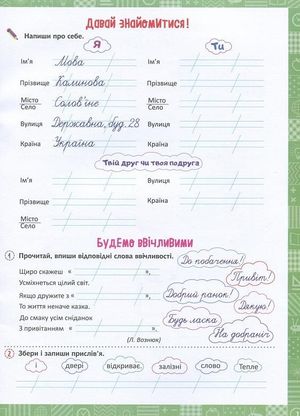 Давай знайомитися!
Напиши про себе.
Я
Ти
Ім'я Мова Ім'я
Прізвище Калинова Прізвище
Місто Місто
Село Солов'їне Село
Вулиця Державна, буд. 28 Вулиця
Країна Україна Країна
Твій друг чи твоя подруга
Ім'я Ім'я
Прізвище Прізвище
Місто Місто
Село Село
Вулиця Вулиця
Країна Країна
Будемо ввічливими
1 Прочитай, впиши відповідні слова ввічливості.
До побачення!
Щиро скажеш « »,
Привіт!
Усміхнеться цілий світ.
Добрий ранок!
Якщо дружите з « »,
Дякую!
То життя неначе казка.
До смаку усім сніданок
Будь ласка
З привітанням « ».
На добраніч
(Л. Вознюк)
2 Збери і запиши прислів'я.
і двері відкриває залізні слово Тепле